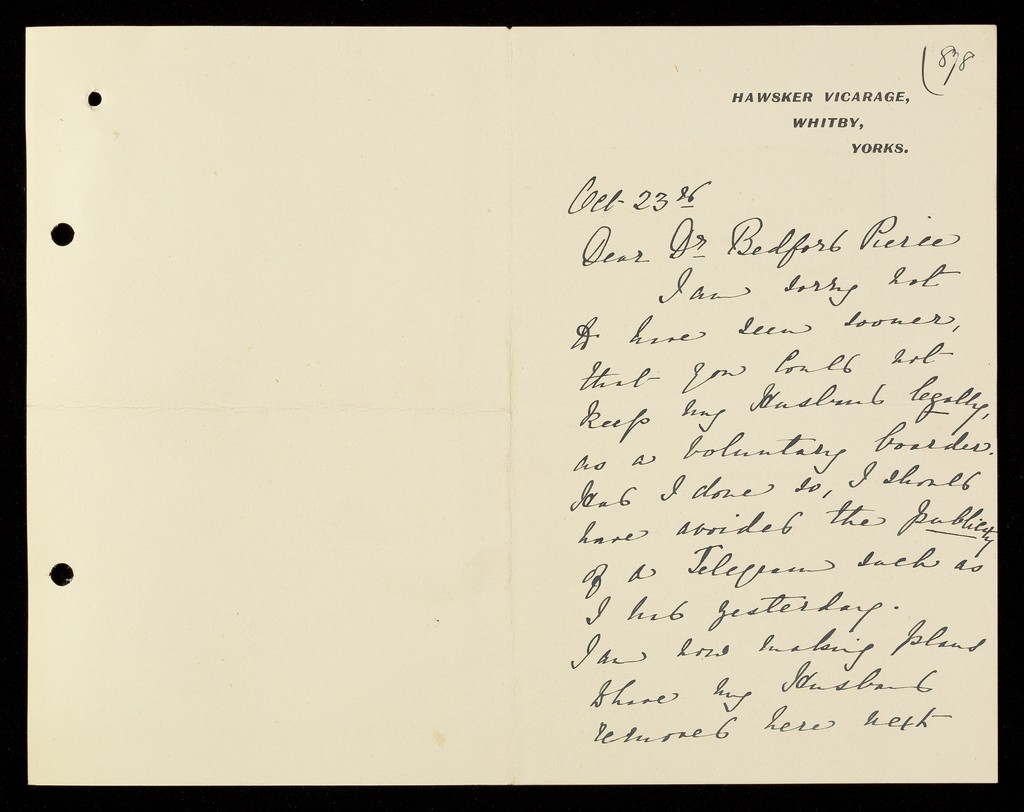 (878
HAWSKER VICARAGE,
WHITBY,
YORKS.
Oct 23rd
Dear Dr Bedford Pierce
I am sorry not
to have seen sooner,
that you could not
keep my Husband legally,
as a voluntary boarder.
Had I done so, I should
have avoided the publicity
of a Telegram such as
I had yesterday.
I am now making plans
to have my Husband
removed here next